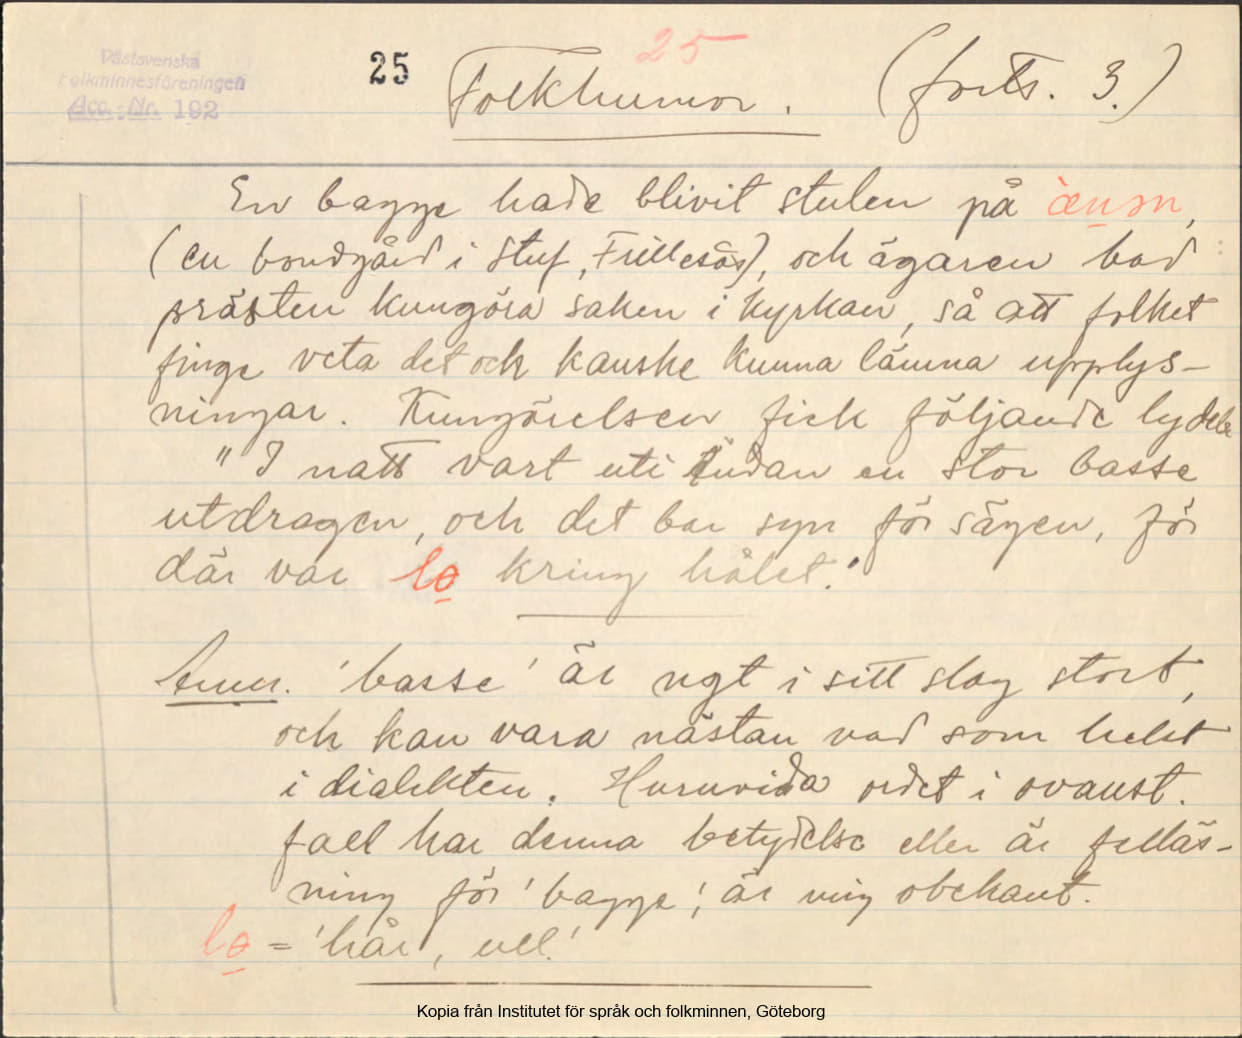 Västsvenska
Folkminnesföreningen
Acc. Nr. 192
25
25
Folkhumor. (forts. 3.)
En bagge hade blivit stulen på
(en bondgård i Stuf, Frillesås), och ägaren bad
prästen kungöra saken i kyrkan, så att folket
finge veta det och kanske kunna lämna upplys-
ningar. Kungörelsen fick följande lydelse
"I natt vart uti en stor basse
utdragen, och det bar syn för sägen, för
där var lo kring hålet."
Anm. 'basse' är ngt i sitt slag stort,
och kan vara nästan vad som helst
i dialekten. Huruvida ordet i ovanst.
fall har denna betydelse eller är felläs-
ning för 'bagge', är mig obekant.
lo = 'hår, ull.'
Kopia från Institutet för språk och folkminnen, Göteborg